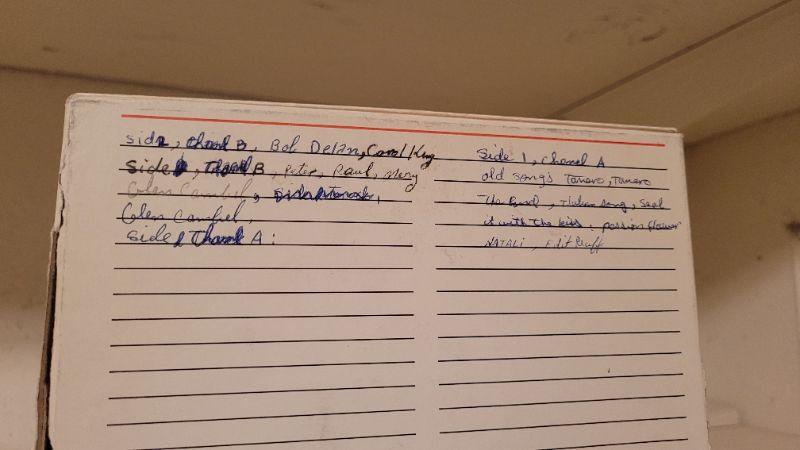 side, Chanl B, Bob Delan, Carol King
Side, Chanl B, Peter, Paul, Mery
Glen Cambel,
Glen Cambel,
side Chanl A:
Side 1, Chanel A
old song's Tamaro, Tamaro
The Band, song, Seal
it with the kiss, passion flower
NATALi, Edit Peaff